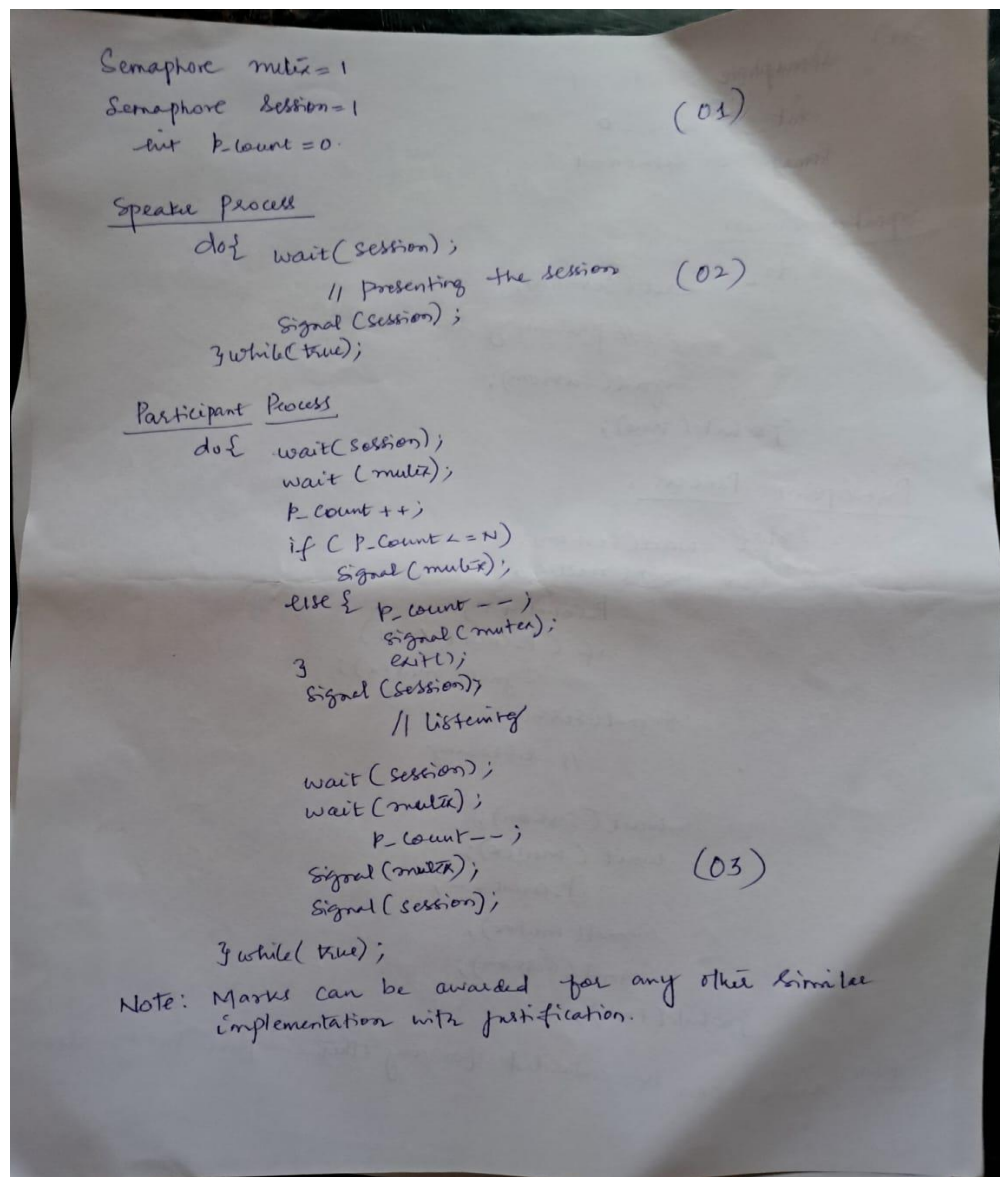 Semaphore mutex = 1
Semaphore Session = 1 (01)
int p_count = 0.
Speaker Process
do{ wait(session);
// Presenting the session (02)
Signal (session);
}while(true);
Participant Process
do{ wait(session);
wait (mutex);
p_count ++;
if ( p_count <= N)
Signal (mutex);
else { p_count --;
signal (mutex);
} exit();
Signal (session);
// listening
wait (session);
wait (mutex);
p_count--;
Signal (mutex); (03)
Signal (session);
}while( true);
Note: Marks can be awarded for any other similar
implementation with justification.